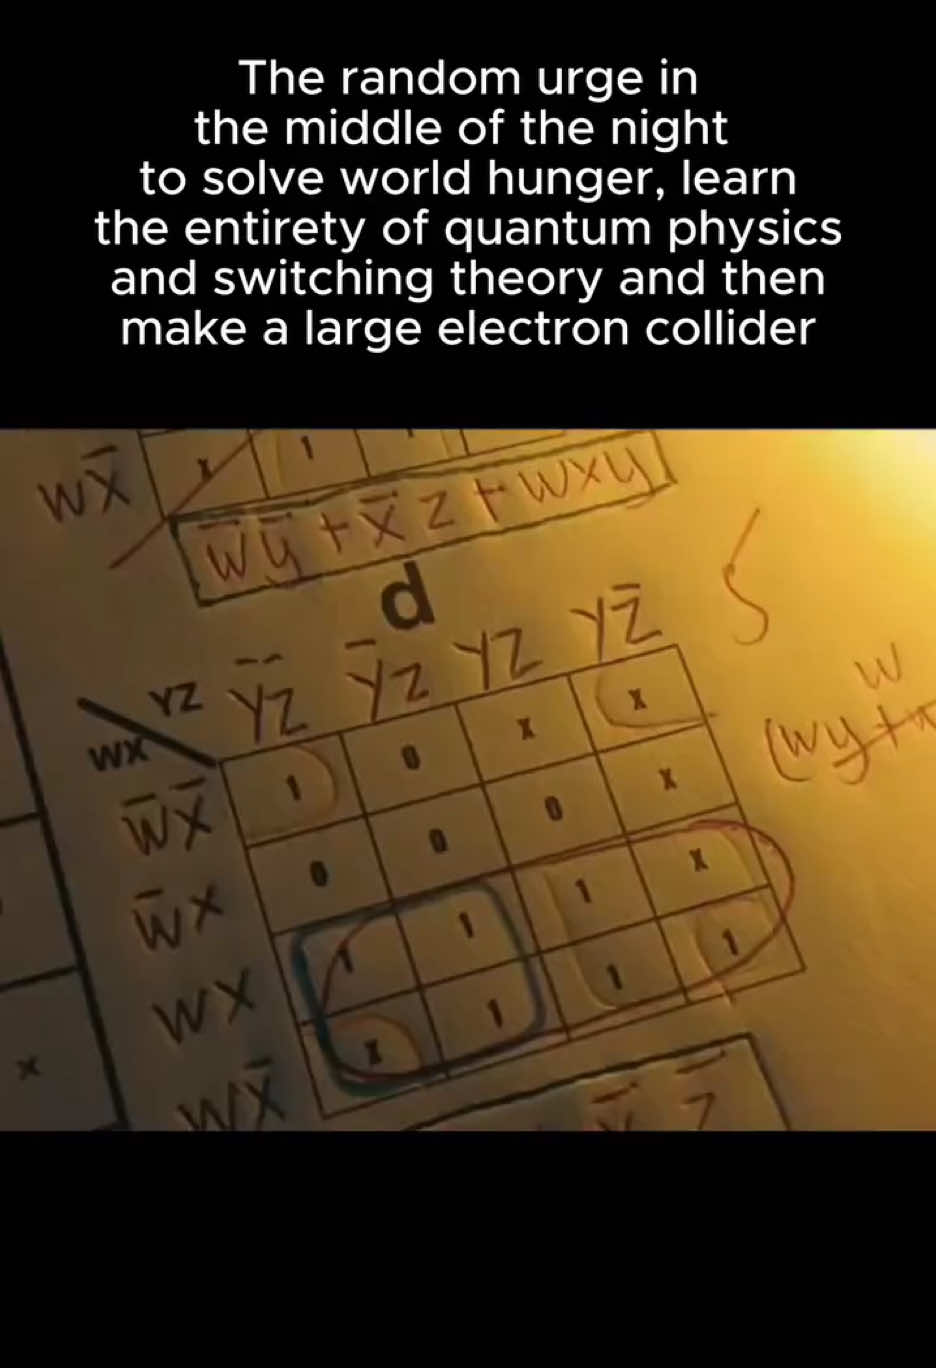 The random urge in
the middle of the night
to solve world hunger, learn
the entirety of quantum physics
and switching theory and then
make a large electron collider
WX̅ x 1 1
w̅y̅ + x̅z + wxy
d
YZ Y̅Z̅ Y̅Z YZ YZ̅
WX
W̅X̅ 1 0 x x
W̅X 0 0 0 x
WX 1 1 1 x
WX̅ x 1 1 1
w
(wy+
x